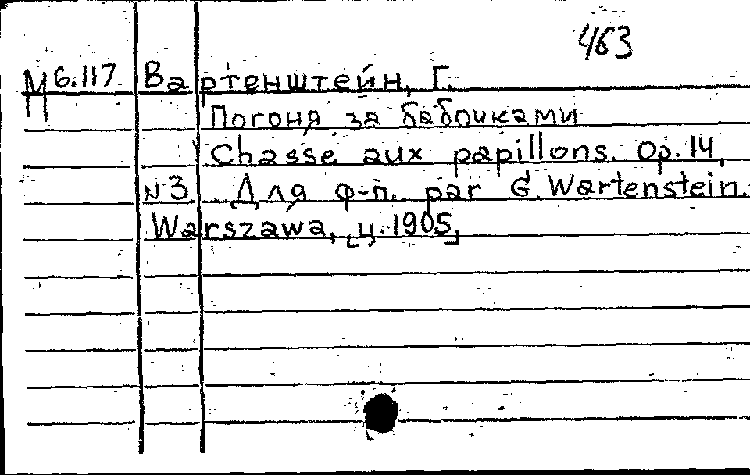 463
М 6.117 Вартенштейн, Г.
Погоня за бабочками
Chasse aux papillons. Op. 14,
N 3 Для ф-п. par G. Wartenstein.
Warszawa, [ц. 1905]